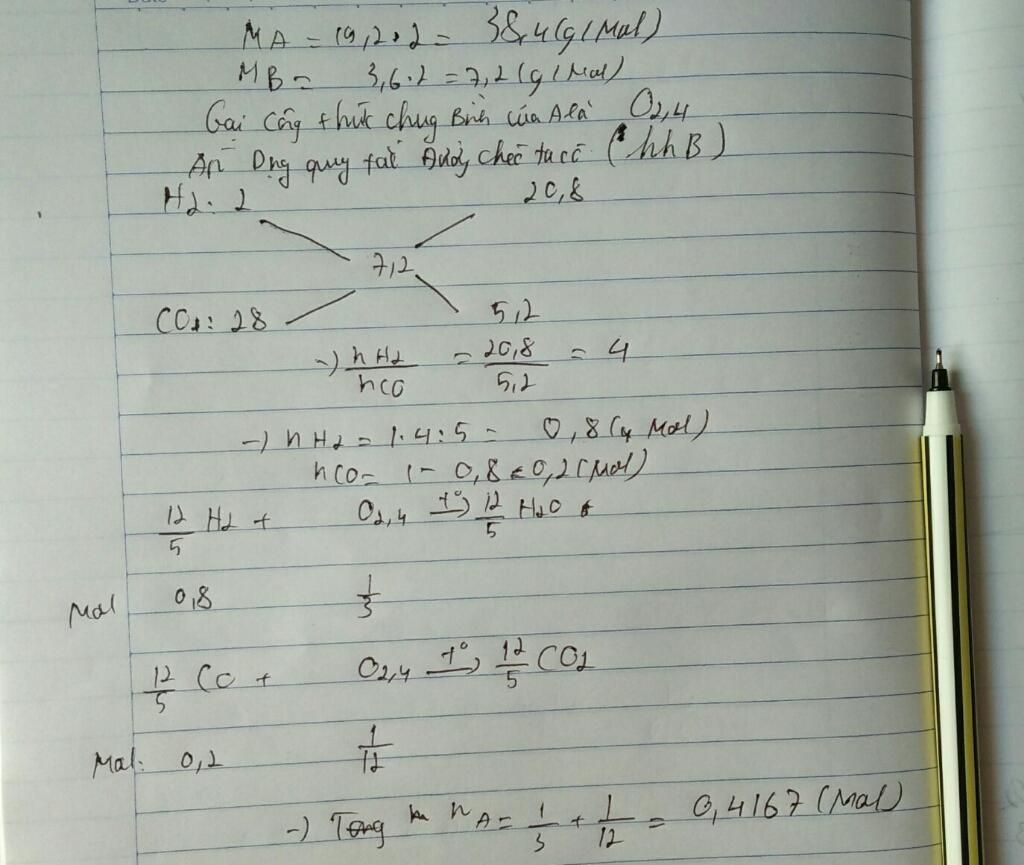 MA = 19,2.2 = 38,4 (g/Mol)
MB = 3,6.2 = 7,2 (g/Mol)
Gọi công thức chug Bình của A là O2,4
Áp Dụng quy tắt đường chéo ta có (hhB)
H2: 2 20,8
7,2
CO: 28 5,2
-) nH2/nCO = 20,8/5,2 = 4
-) nH2 = 1.4:5 = 0,8 (Mol)
nCO = 1 - 0,8 = 0,2 (Mol)
12/5 H2 + O2,4 t° -> 12/5 H2O
Mol 0,8 1/3
12/5 CO + O2,4 t° -> 12/5 CO2
Mol: 0,2 1/12
-) Tổng nA = 1/3 + 1/12 = 0,4167 (Mol)